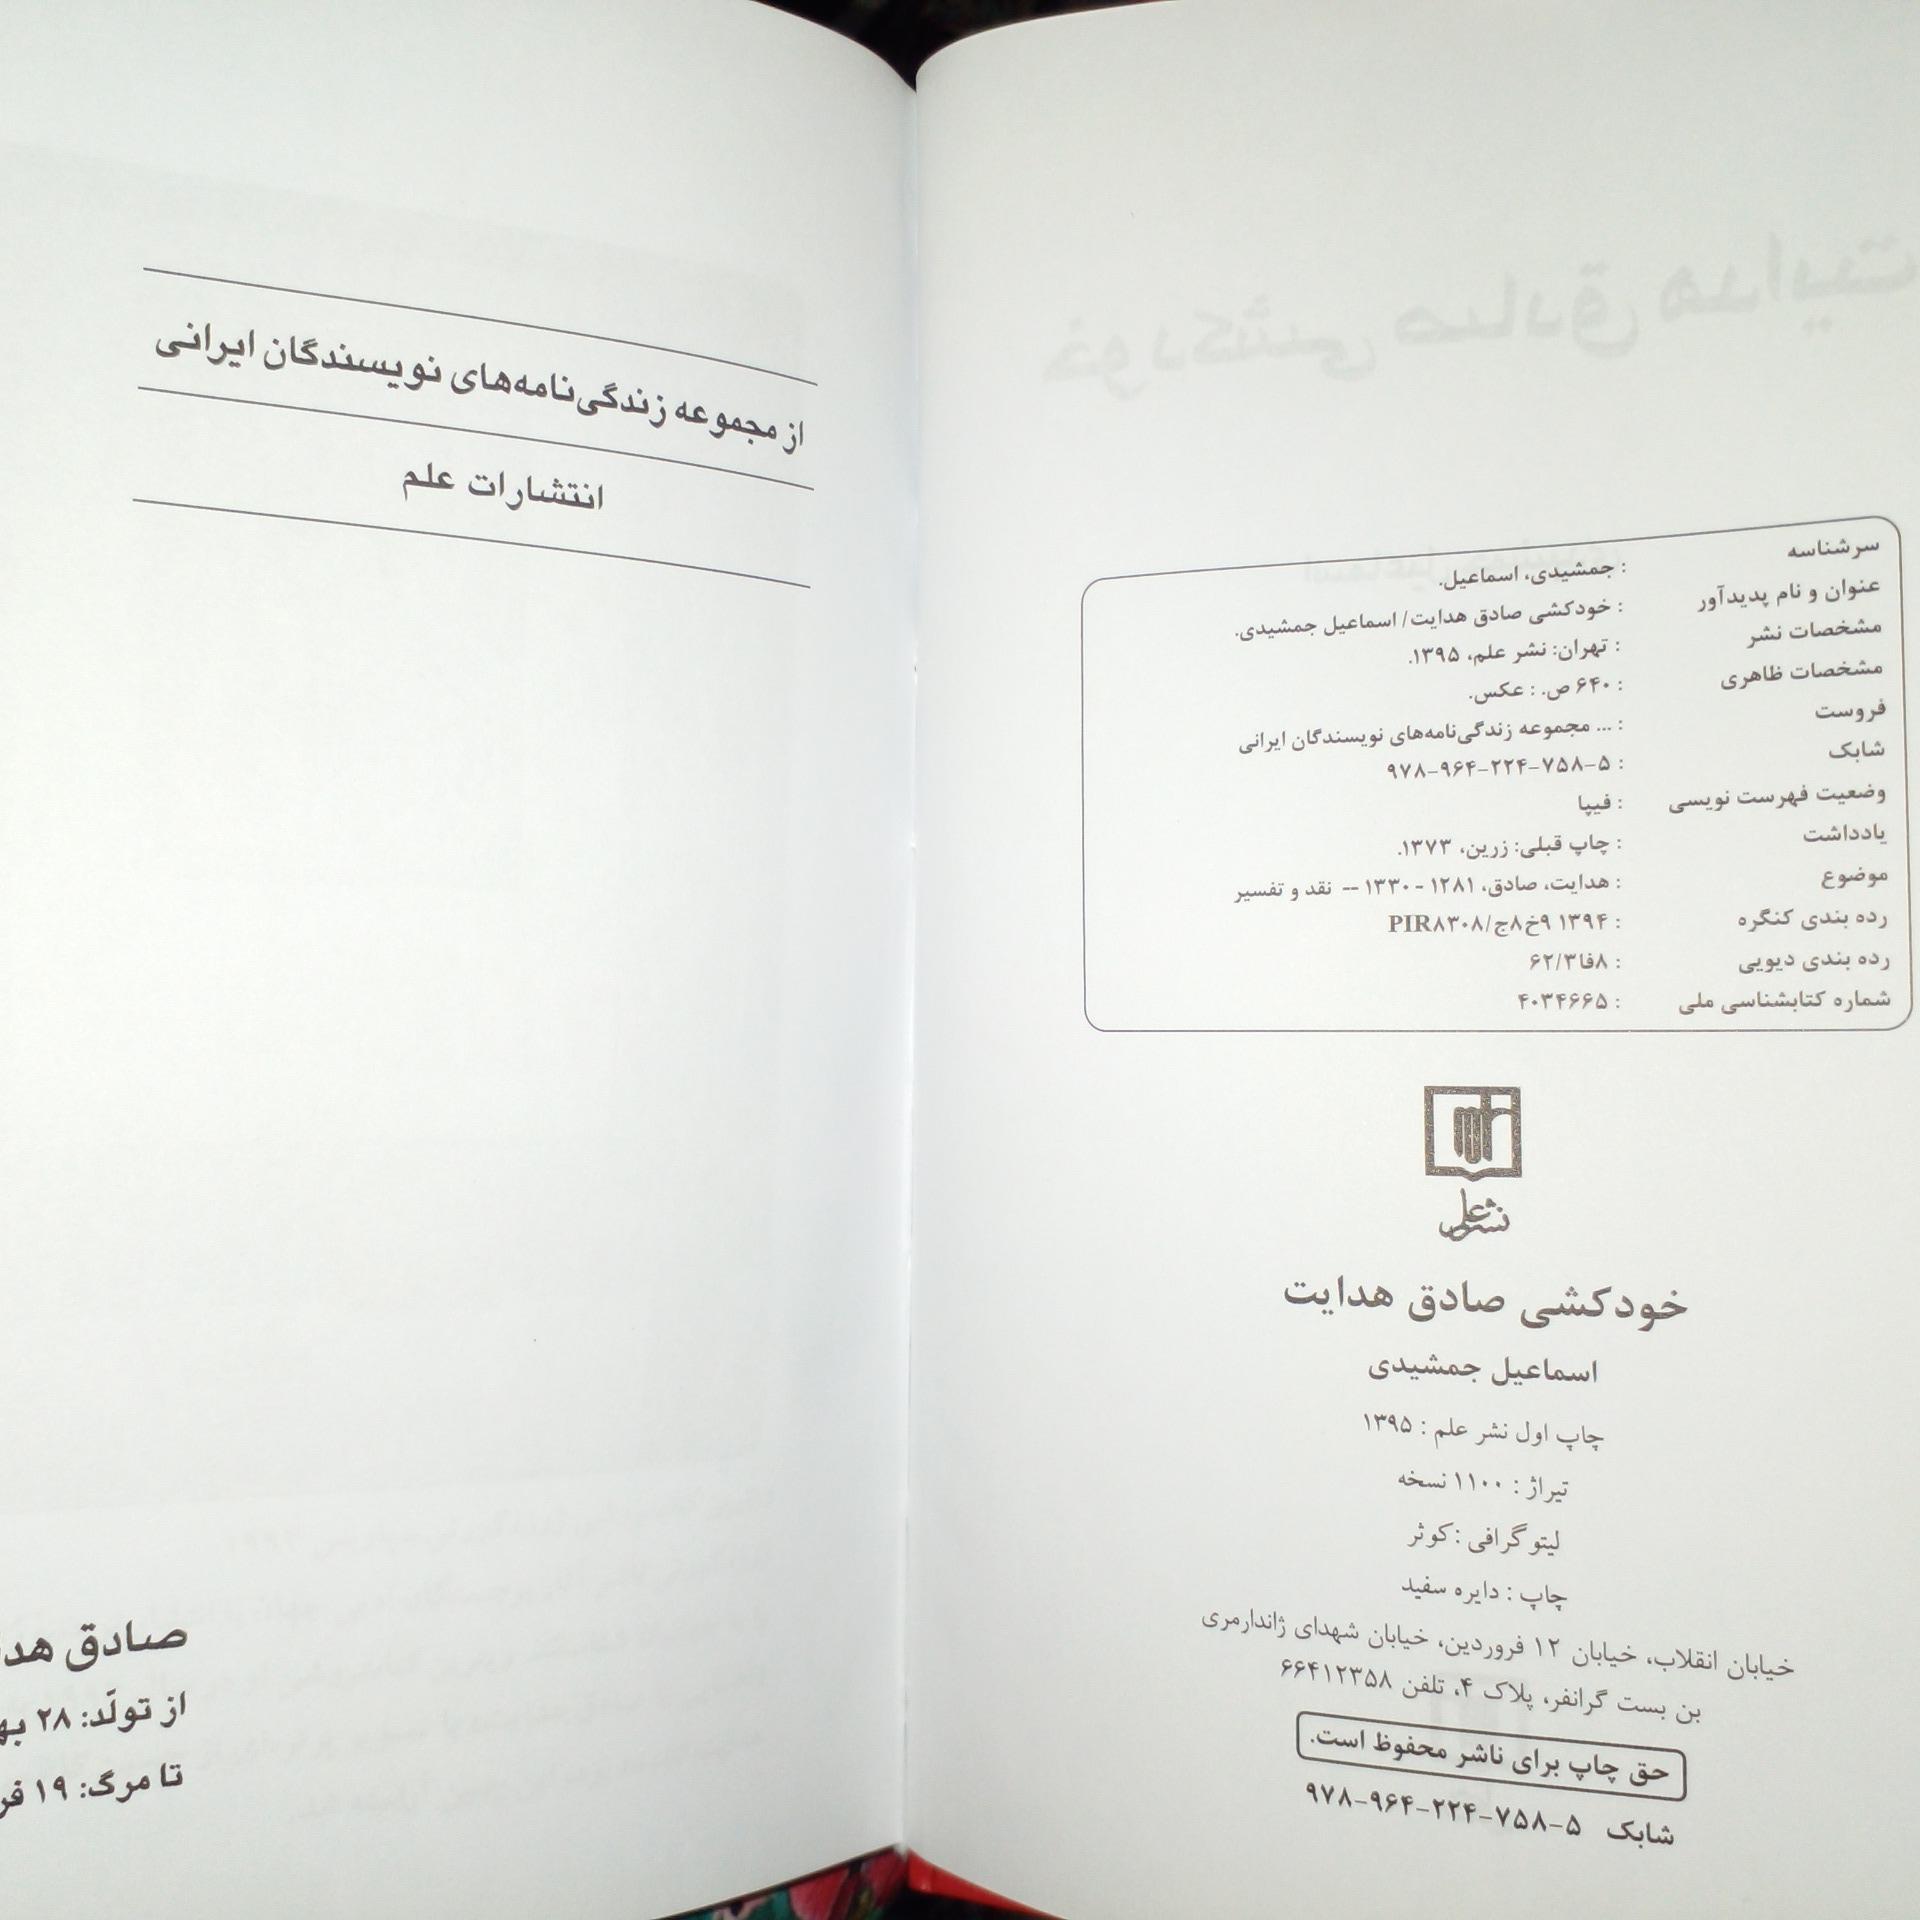 سرشناسه : جمشیدی، اسماعیل.
عنوان و نام پدیدآور : خودکشی صادق هدایت/ اسماعیل جمشیدی.
مشخصات نشر : تهران: نشر علم، ۱۳۹۵.
مشخصات ظاهری : ۶۴۰ ص. : عکس.
فروست : ... مجموعه زندگی‌نامه‌های نویسندگان ایرانی
شابک : ۹۷۸-۹۶۴-۲۲۴-۷۵۸-۵
وضعیت فهرست نویسی : فیپا
یادداشت : چاپ قبلی: زرین، ۱۳۷۳.
موضوع : هدایت، صادق، ۱۲۸۱ - ۱۳۳۰ -- نقد و تفسیر
رده بندی کنگره : ۱۳۹۴ ۹خ۸ج/PIR۸۳۰۸
رده بندی دیویی : ۸فا۶۲/۳
شماره کتابشناسی ملی : ۴۰۳۴۶۶۵
نشر علم
خودکشی صادق هدایت
اسماعیل جمشیدی
چاپ اول نشر علم : ۱۳۹۵
تیراژ : ۱۱۰۰ نسخه
لیتوگرافی :کوثر
چاپ : دایره سفید
خیابان انقلاب، خیابان ۱۲ فروردین، خیابان شهدای ژاندارمری
بن بست گرانفر، پلاک ۴، تلفن ۶۶۴۱۲۳۵۸
حق چاپ برای ناشر محفوظ است.
شابک ۹۷۸-۹۶۴-۲۲۴-۷۵۸-۵
از مجموعه زندگی‌نامه‌های نویسندگان ایرانی
انتشارات علم
صادق
از تولّد: ۲۸
تا مرگ: ۱۹